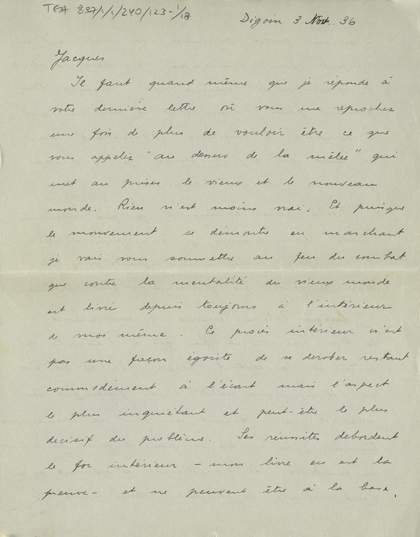 TGA 897/1/1/240/123-1/18
Digoin 3 Nov. 36
Jacques
Il faut quand même que je réponde à
votre dernière lettre où vous me reprochez
une fois de plus de vouloir être ce que
vous appelez "au dessus de la mêlée" qui
met au prises le vieux et le nouveau
monde. Rien n'est moins vrai. Et puisque
le mouvement se démontre en marchant
je vais vous soumettre au feu du combat
que contre la mentalité du vieux monde
est livré depuis toujours à l'intérieur
de moi même. Ce procès intérieur n'est
pas une façon égoiste de se dérober restant
commodément à l'écart mais l'aspect
le plus inquiétant et peut-être le plus
décisif du problème. Ses réussites débordent
le for intérieur - mon livre en est la
preuve - et ne peuvent être à la base,